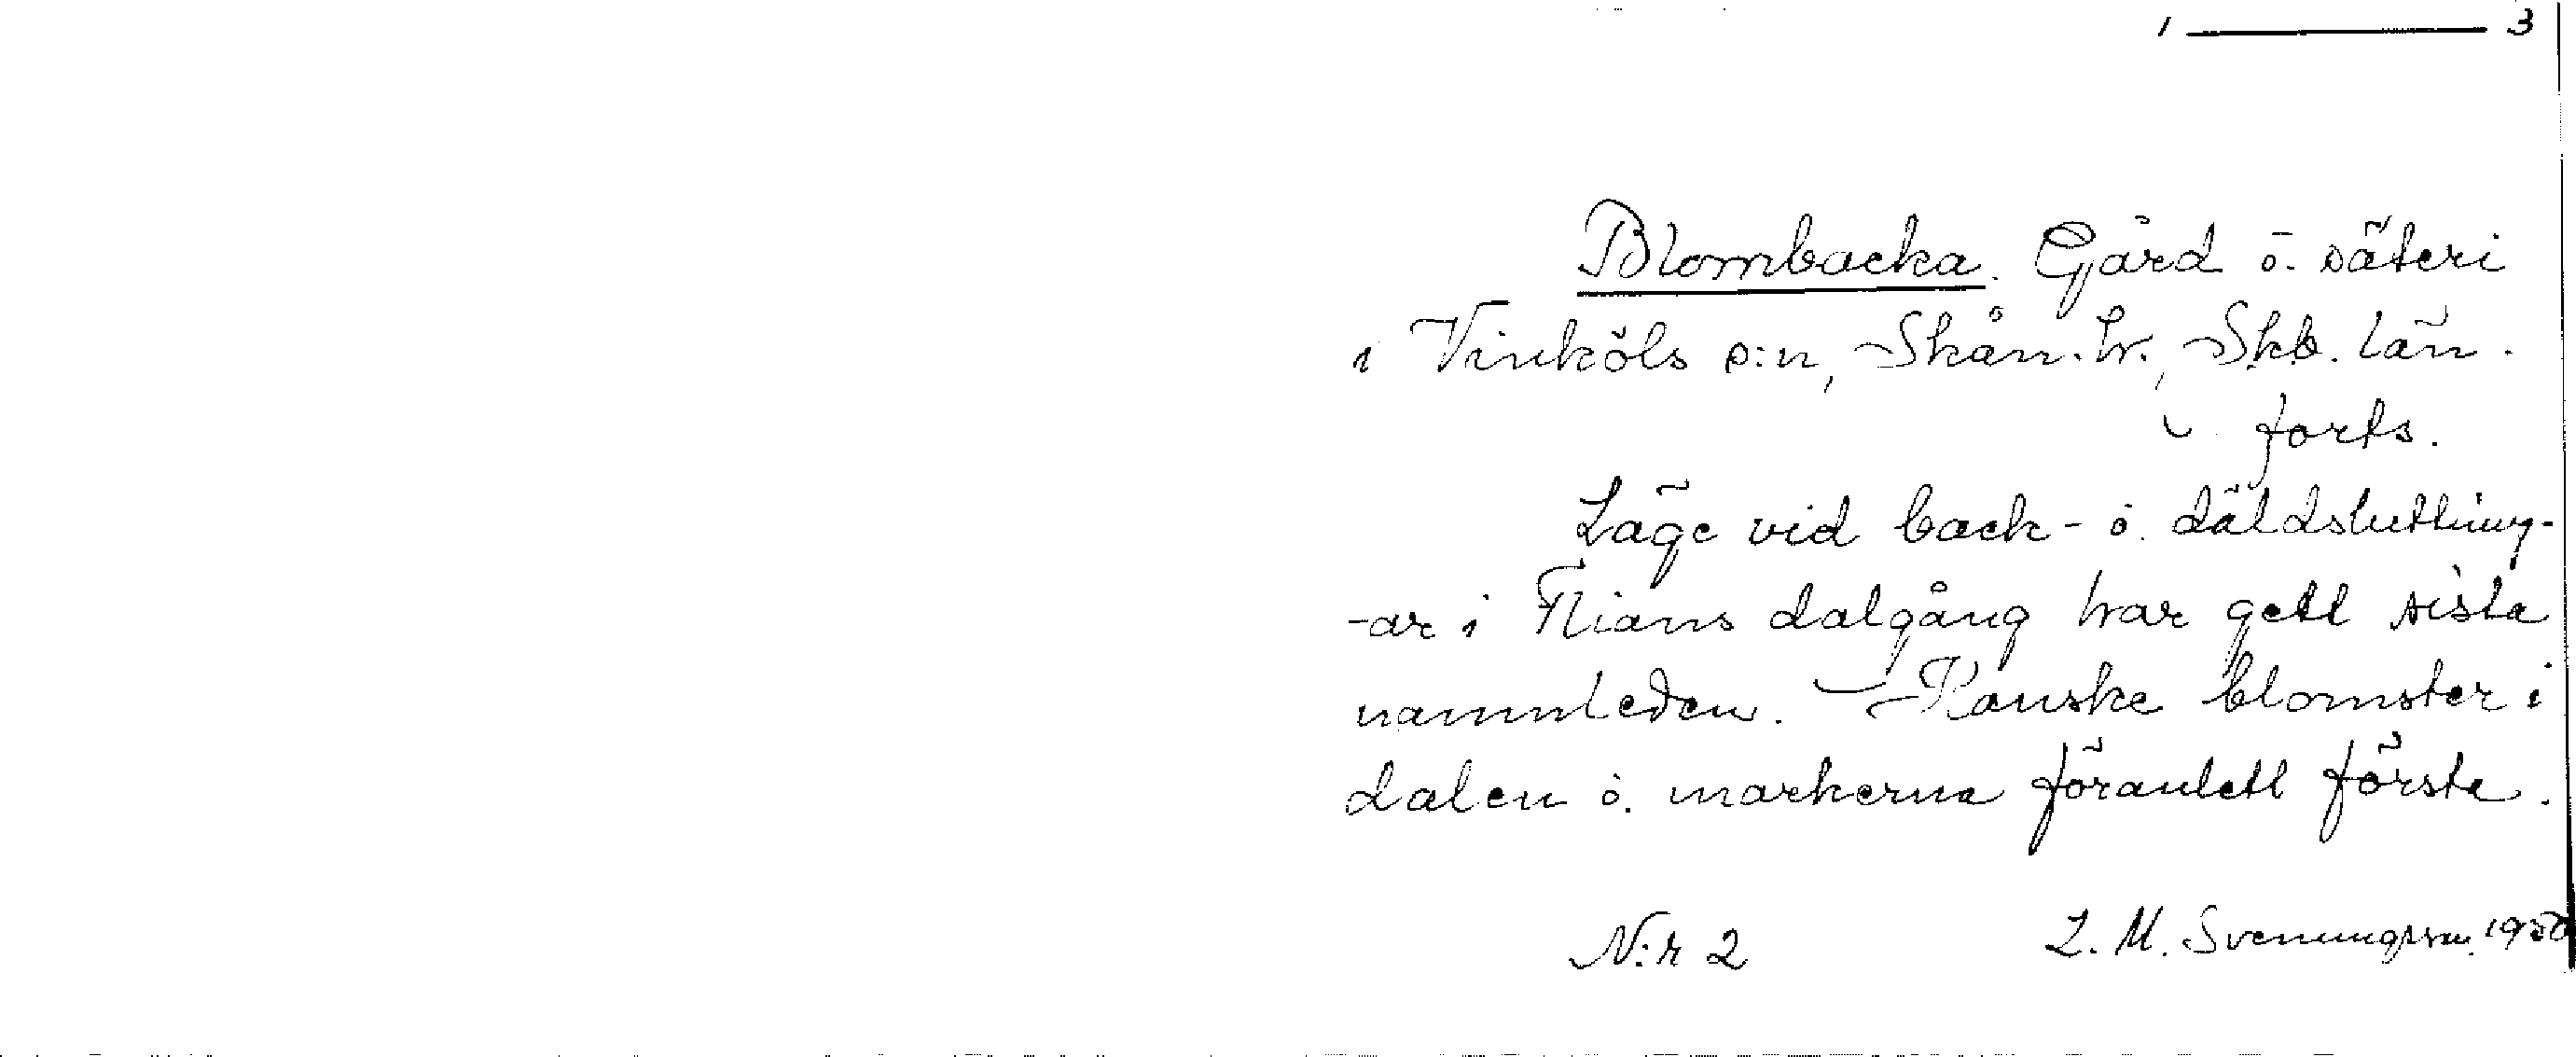 1 ——— 3
Blombacka. Gård ö. säteri
i Vinköls s:n, Skån. hr., Skb. län.
forts.
Läge vid back- ö. däldsluttning-
-ar i Flians dalgång har gett sista
namnleden. Kanske blomster i
dalen ö. markerna föranlett förste.
N:r 2 L. M. Svenungsson. 1950